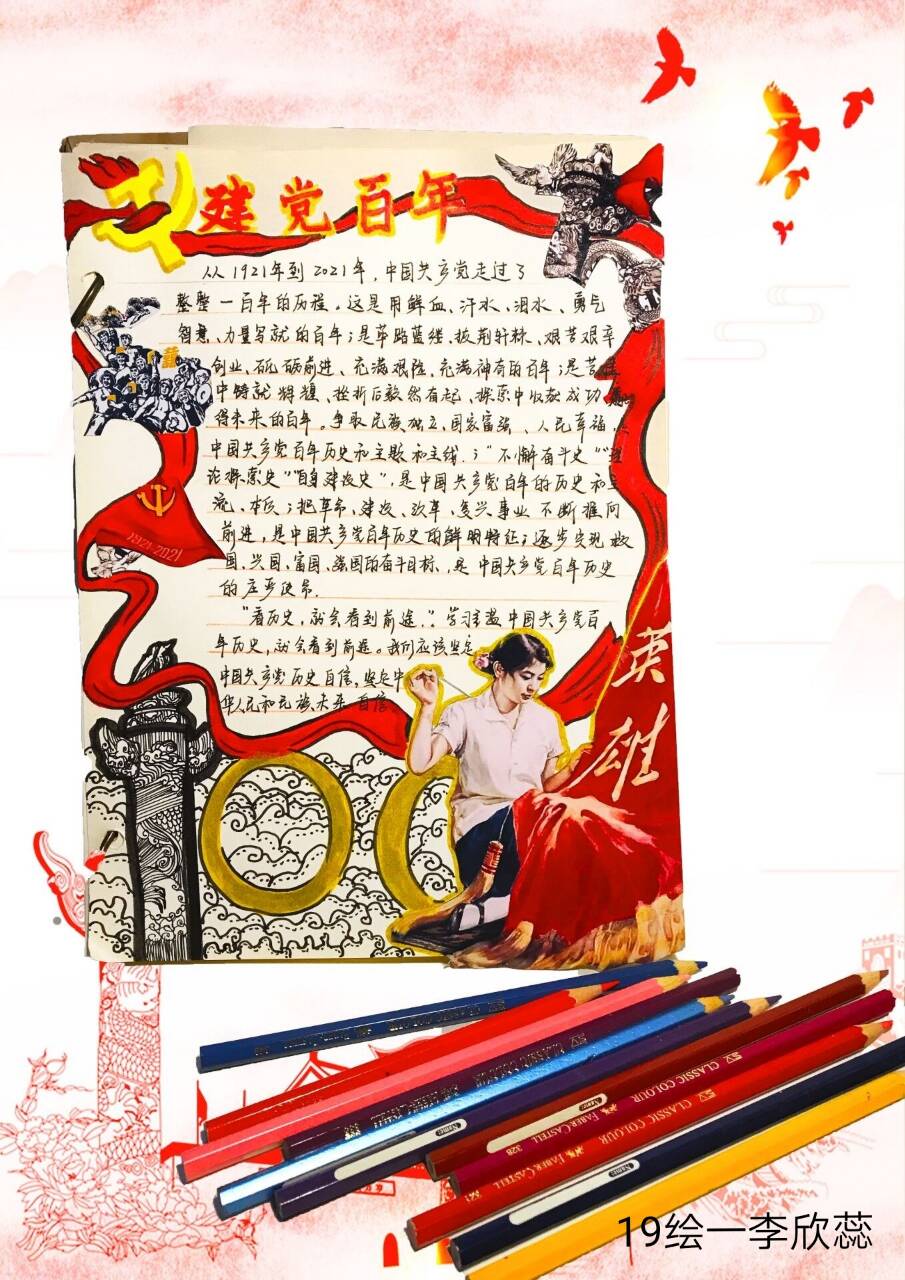 建党百年
从1921年到2021年,中国共产党走过了
整整一百年的历程。这是用鲜血、汗水、泪水、勇气
智慧、力量写就的百年;是筚路蓝缕、披荆斩棘、艰苦艰辛
创业、砥砺前进、充满艰险、充满神奇的百年;是苦难
中铸就辉煌、挫折后毅然有起、探索中收获成功
得未来的百年。争取民族独立、国家富强、人民幸福
中国共产党百年历史和主题和主线;“不懈奋斗史”“理
论探索史”“自身建设史”,是中国共产党百年的历史和主
流、本质;把革命、建设、改革、复兴事业不断推向
前进,是中国共产党百年历史的鲜明特征;逐步实现救
国、兴国、富国、强国的奋斗目标,是中国共产党百年历史
的庄严使命.
“看历史,就会看到前途.”学习 中国共产党百
年历史,就会看到前途。我们应该坚定
中国共产党历史自信,坚定中
华人民和民族未来自信
1921-2021
英
雄
CLASSIC COLOUR
FABER CASTELL 328
CLASSIC COLOUR
FABER CASTELL
19绘一李欣蕊